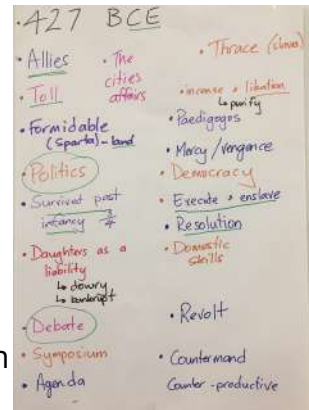 • 427 BCE
• Allies
• Toll
• Formidable
(Sparta) - land
• Politics
• Survival past
infancy 3/4
• Daughters as a
liability
↳ dowry
↳ bankrupt
• Debate
• Symposium
• Agenda
• The
cities
affairs
• Thrace (slaves)
• incense • libation
↳ purify
• Paedigogos
• Mercy / vengance
• Democracy
• Execute • enslave
• Resolution
• Domestic
skills
• Revolt
• Countermand
Counter-productive